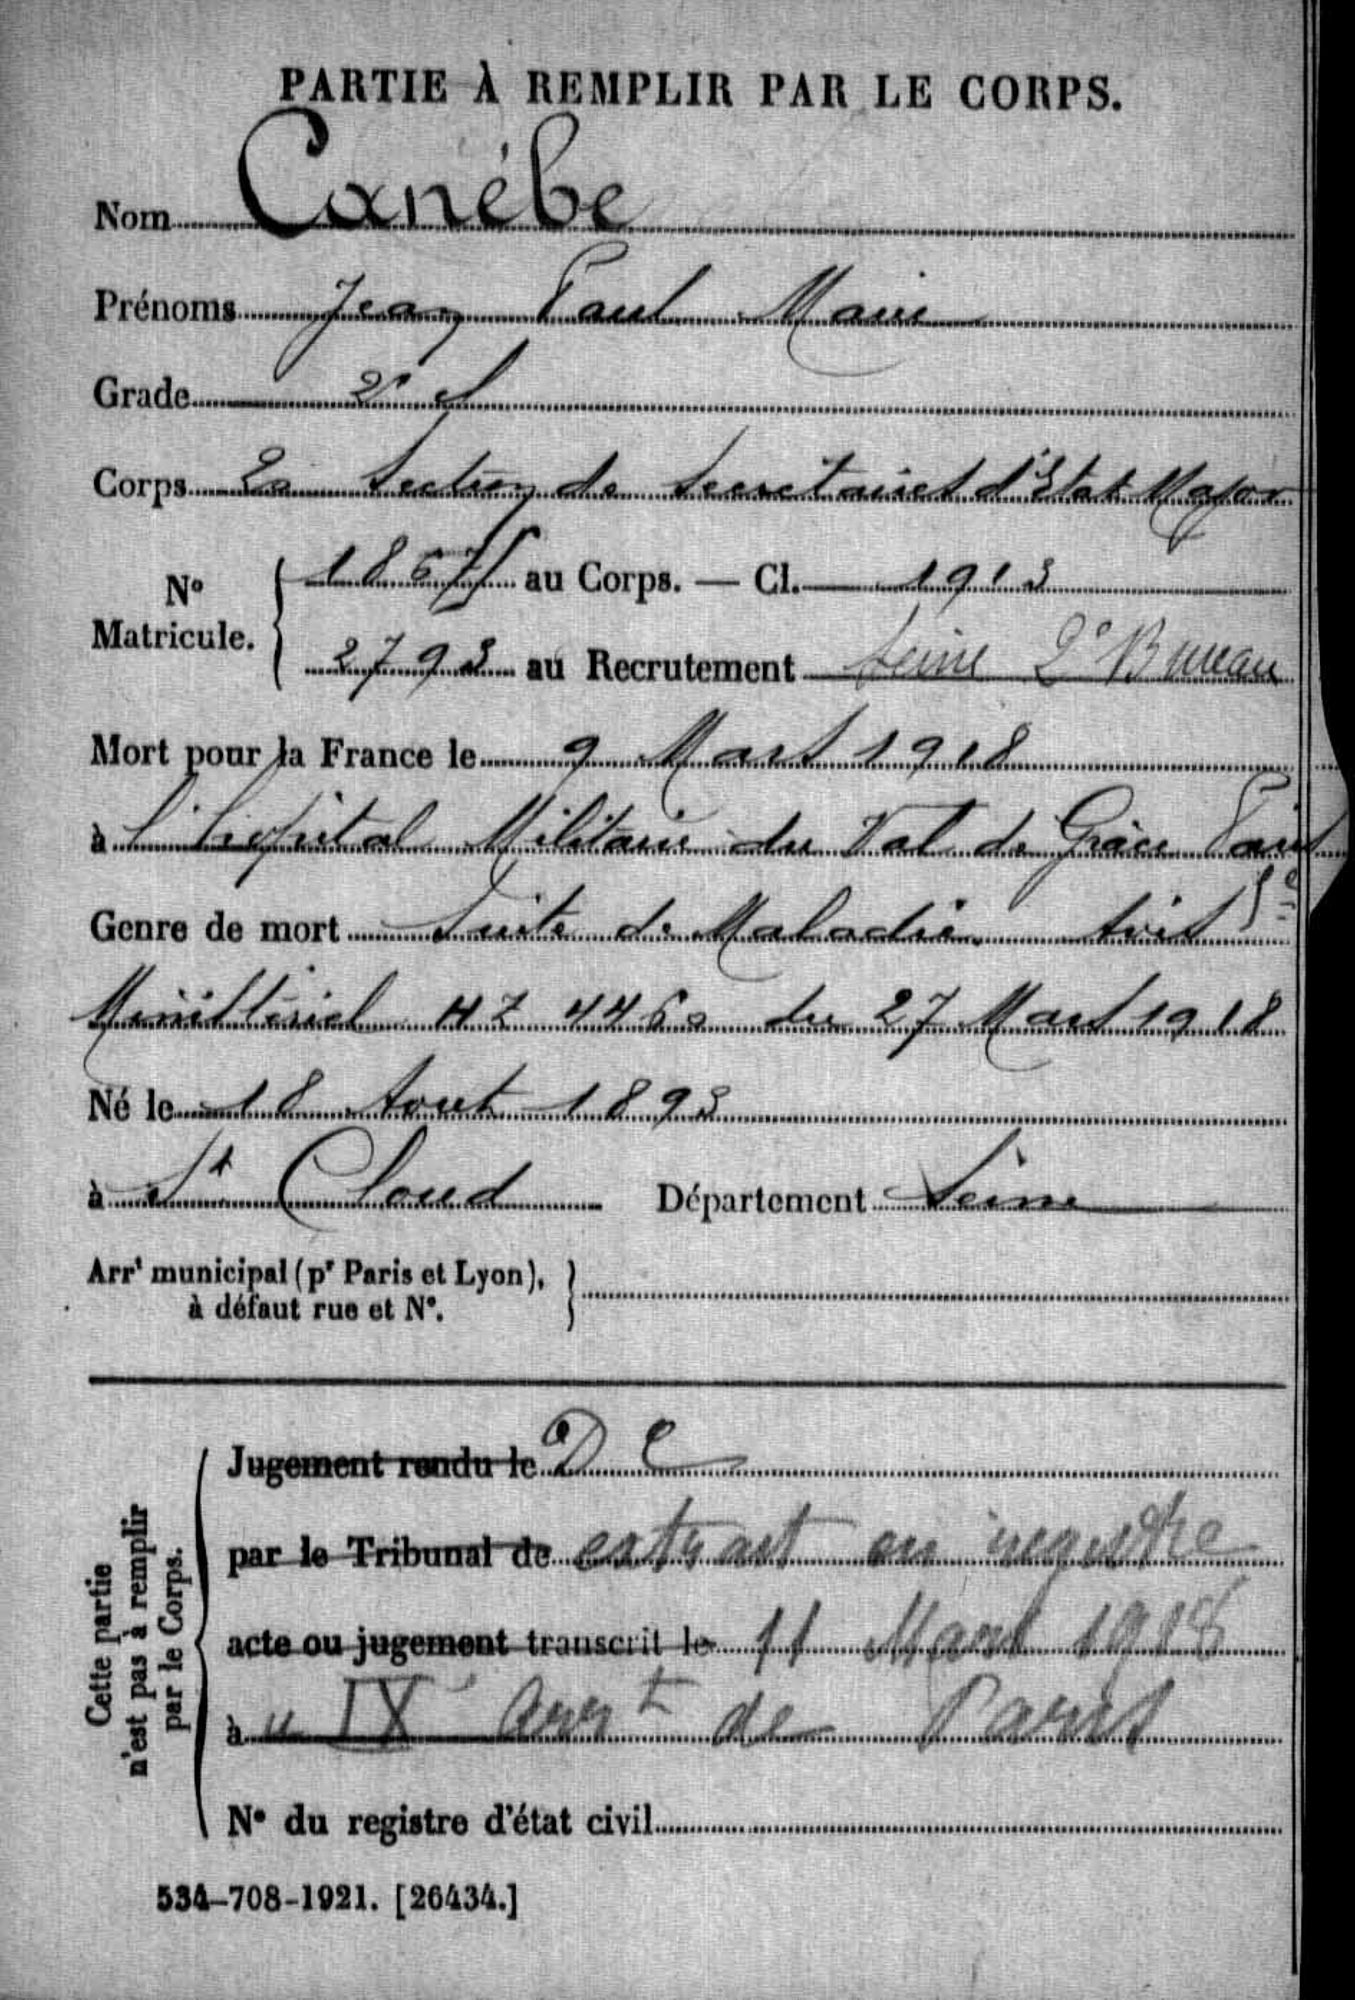 PARTIE À REMPLIR PAR LE CORPS.
Nom Canébe
Prénoms Jean Paul Marie
Grade 2e S
Corps 20 Section de Secretaires d'Etat Major
No Matricule. 1867 au Corps. — Cl. 1913
2793 au Recrutement Seine 2e Bureau
Mort pour la France le 9 Mars 1918
à l'hopital Militaire du Val de Grâce Paris 5e
Genre de mort Suite de Maladie. Avis
Ministériel HZ 4460 du 27 Mars 1918
Né le 18 Aout 1893
à St Cloud Département Seine
Arrt municipal (pr Paris et Lyon),
à défaut rue et No.
Cette partie
n'est pas à remplir
par le Corps.
Jugement rendu le D C
par le Tribunal de extrait en registre
acte ou jugement transcrit le 11 Mars 1918
à u IX Arrt de Paris
No du registre d'état civil
534-708-1921. [26434.]